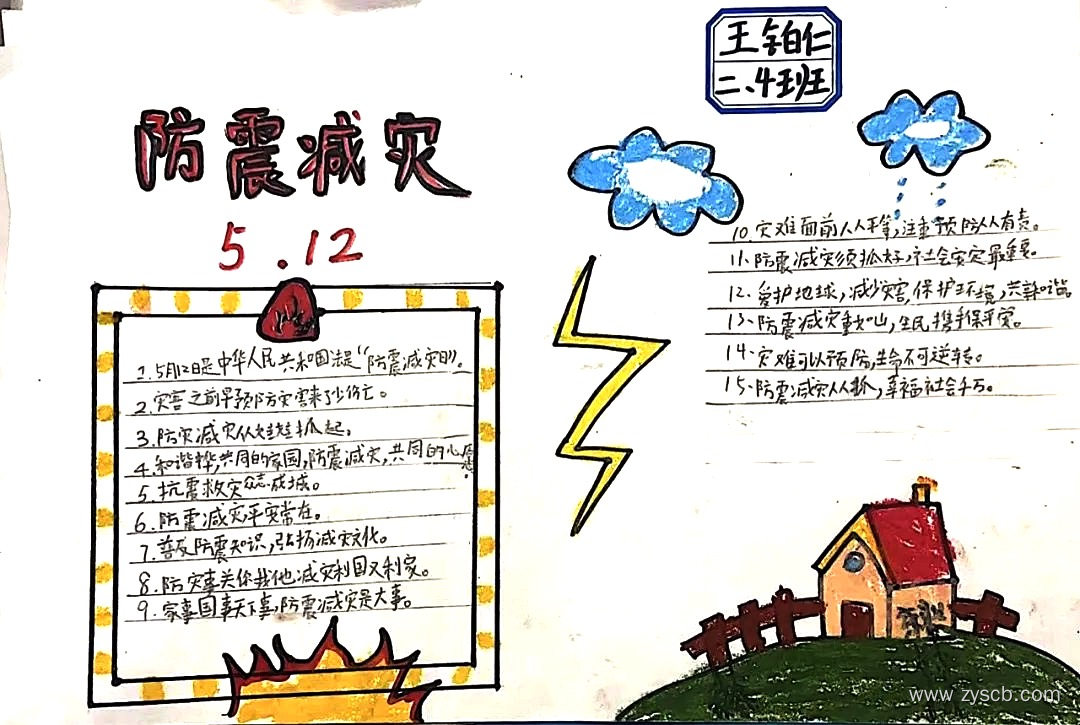 王铂仁
二、4班
防震减灾
5.12
1.5月12日是中华人民共和国法定"防震减灾日"。
2.灾害之前早预防灾害来了少伤亡。
3.防灾减灾从娃娃抓起。
4.和谐桦,共同的家园,防震减灾,共同的心愿。
5.抗震救灾众志成城。
6.防震减灾平安常在。
7.普及防震知识,弘扬减灾文化。
8.防灾事关你我他减灾利国又利家。
9.家事国事天下事,防震减灾是大事。
10.灾难面前人人平等,注重预防人人有责。
11.防震减灾须抓好,社会安定最重要。
12.爱护地球,减少灾害,保护环境,共辞和谐
13、防震减灾重如山,全民携手保平安。
14、灾难可以预防,生命不可逆转。
15、防震减灾从人抓,幸福社会千万。
www.zyscb.com